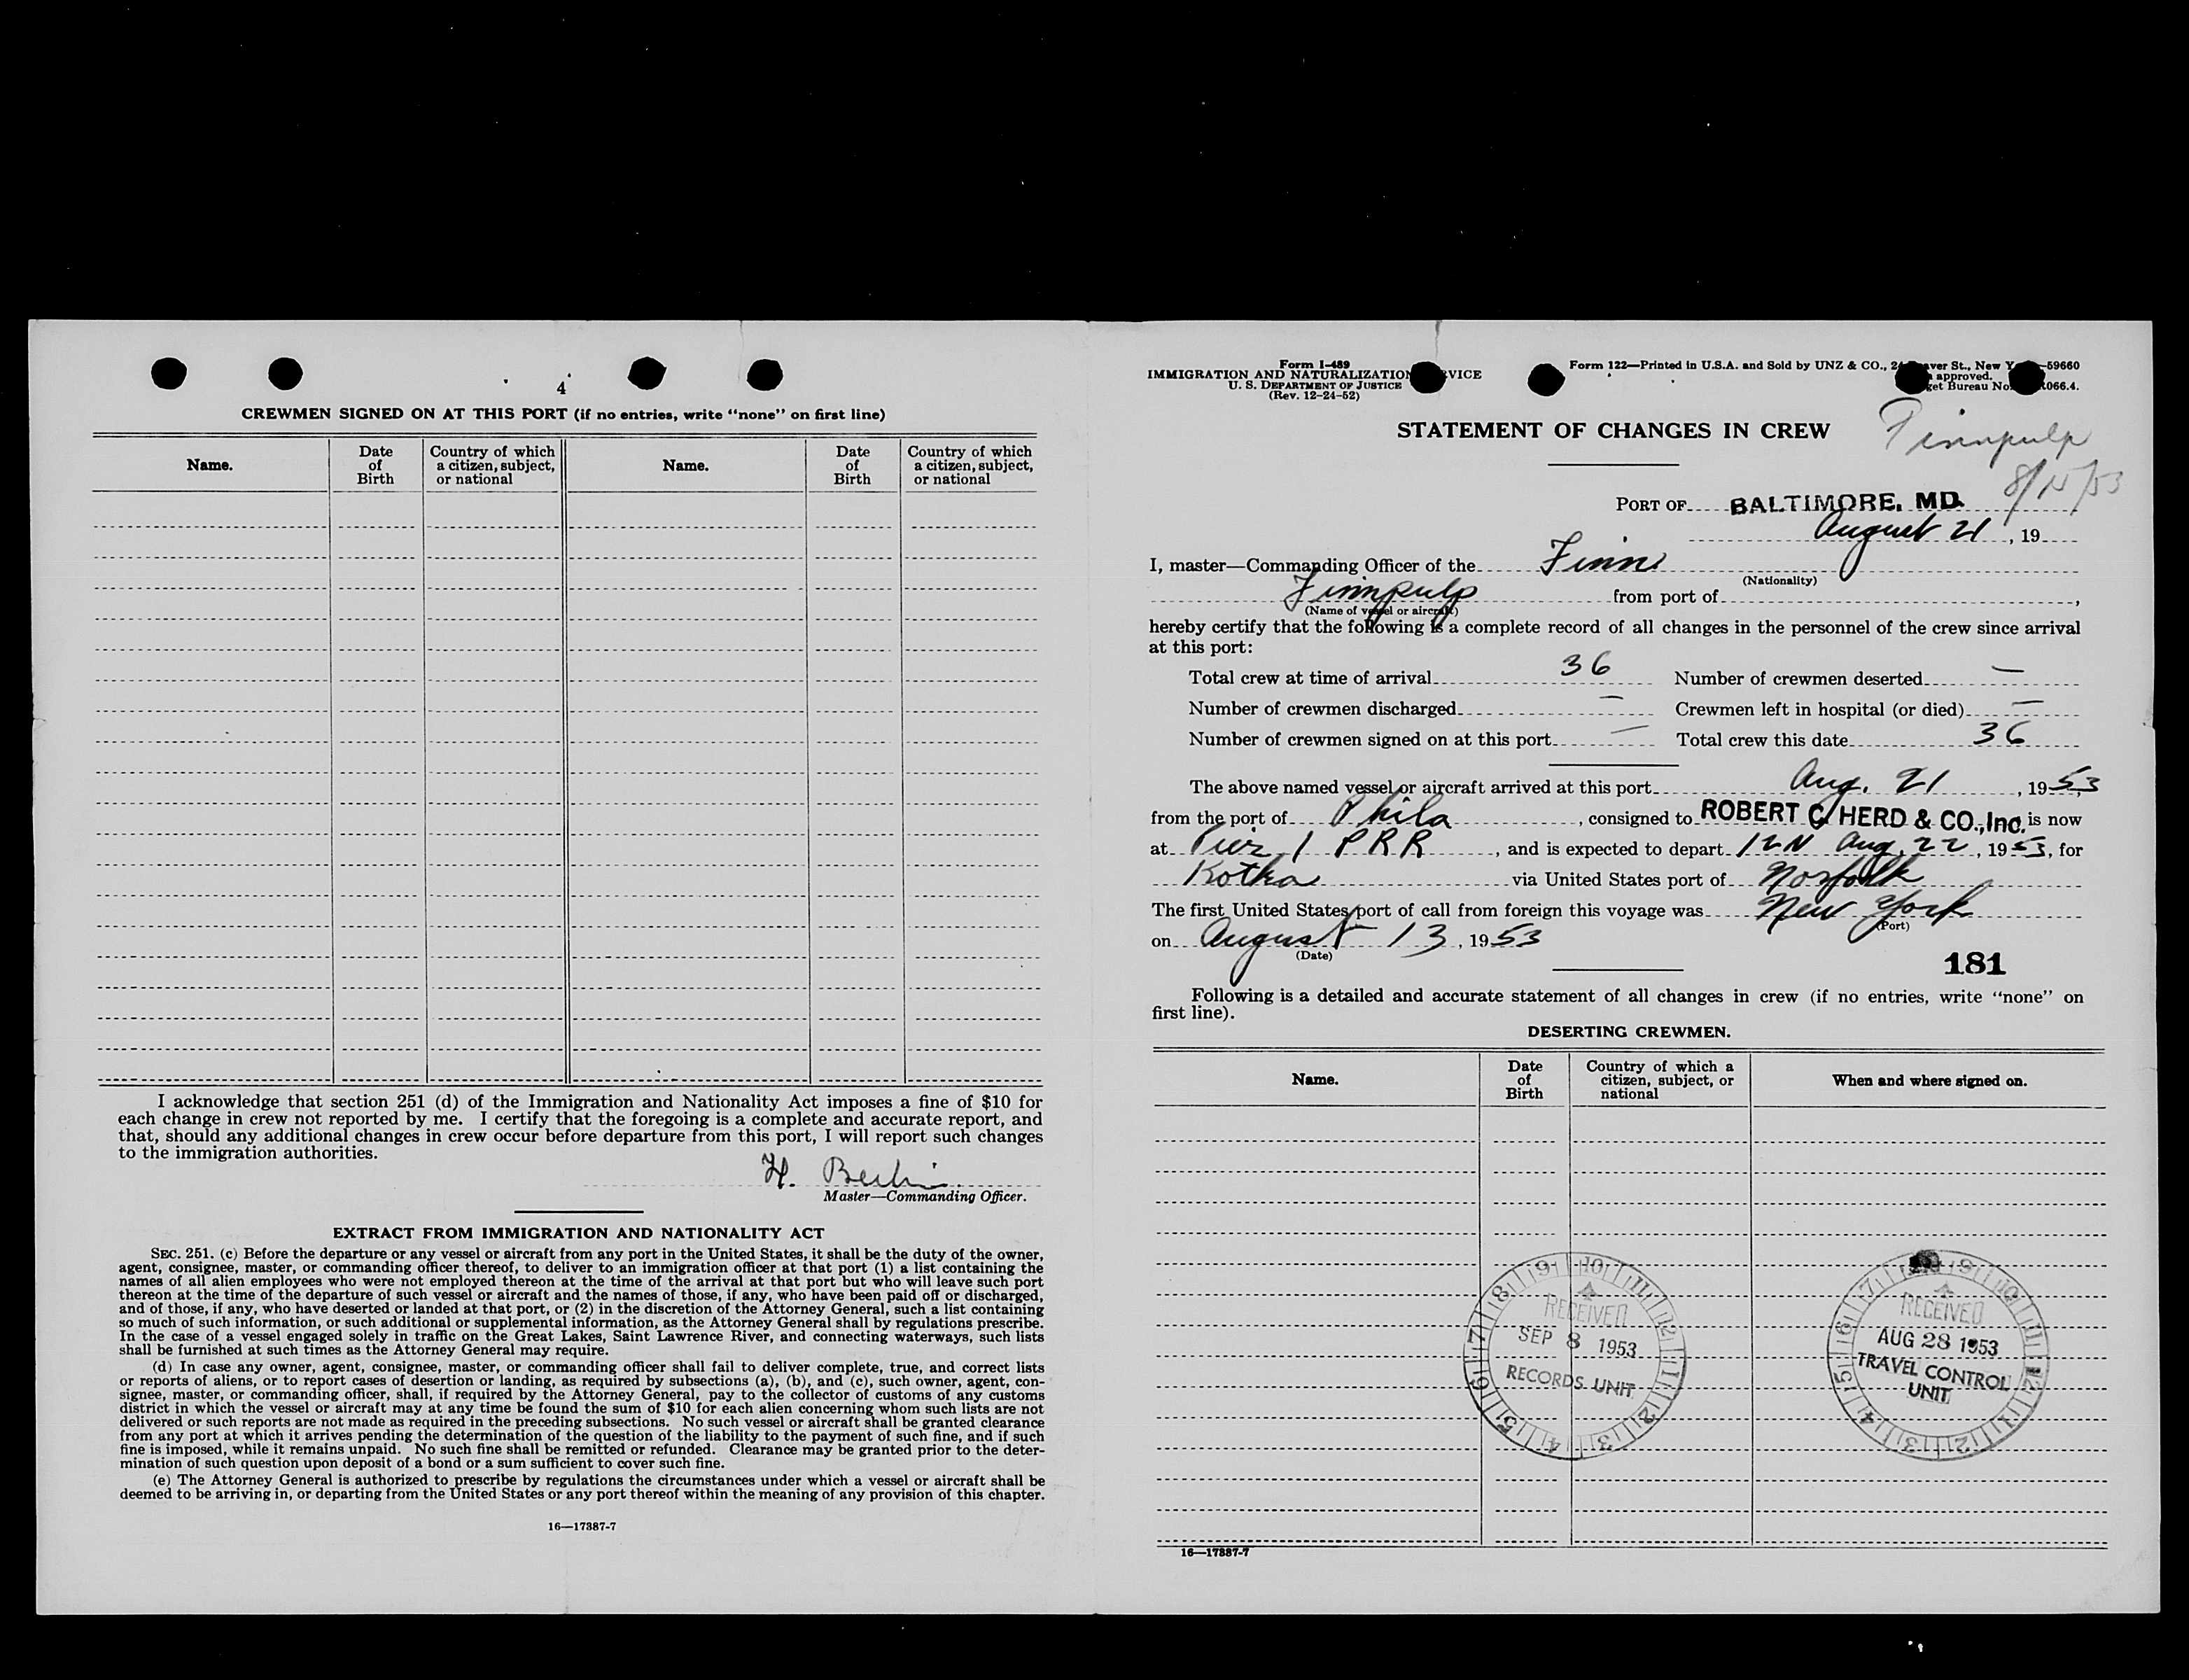 4
CREWMEN SIGNED ON AT THIS PORT (if no entries, write “none” on first line)
Name.
Date of Birth
Country of which a citizen, subject, or national
Name.
Date of Birth
Country of which a citizen, subject, or national
I acknowledge that section 251 (d) of the Immigration and Nationality Act imposes a fine of $10 for
each change in crew not reported by me. I certify that the foregoing is a complete and accurate report, and
that, should any additional changes in crew occur before departure from this port, I will report such changes
to the immigration authorities.
H.
Master—Commanding Officer.
EXTRACT FROM IMMIGRATION AND NATIONALITY ACT
SEC. 251. (c) Before the departure or any vessel or aircraft from any port in the United States, it shall be the duty of the owner,
agent, consignee, master, or commanding officer thereof, to deliver to an immigration officer at that port (1) a list containing the
names of all alien employees who were not employed thereon at the time of the arrival at that port but who will leave such port
thereon at the time of the departure of such vessel or aircraft and the names of those, if any, who have been paid off or discharged,
and of those, if any, who have deserted or landed at that port, or (2) in the discretion of the Attorney General, such a list containing
so much of such information, or such additional or supplemental information, as the Attorney General shall by regulations prescribe.
In the case of a vessel engaged solely in traffic on the Great Lakes, Saint Lawrence River, and connecting waterways, such lists
shall be furnished at such times as the Attorney General may require.
(d) In case any owner, agent, consignee, master, or commanding officer shall fail to deliver complete, true, and correct lists
or reports of aliens, or to report cases of desertion or landing, as required by subsections (a), (b), and (c), such owner, agent, con-
signee, master, or commanding officer, shall, if required by the Attorney General, pay to the collector of customs of any customs
district in which the vessel or aircraft may at any time be found the sum of $10 for each alien concerning whom such lists are not
delivered or such reports are not made as required in the preceding subsections. No such vessel or aircraft shall be granted clearance
from any port at which it arrives pending the determination of the question of the liability to the payment of such fine, and if such
fine is imposed, while it remains unpaid. No such fine shall be remitted or refunded. Clearance may be granted prior to the deter-
mination of such question upon deposit of a bond or a sum sufficient to cover such fine.
(e) The Attorney General is authorized to prescribe by regulations the circumstances under which a vessel or aircraft shall be
deemed to be arriving in, or departing from the United States or any port thereof within the meaning of any provision of this chapter.
16—17387-7
Form I-489
IMMIGRATION AND NATURALIZATION
U. S. DEPARTMENT OF JUSTICE
(Rev. 12-24-52)
Form 122—Printed in U.S.A. and Sold by UNZ & CO., New 59660
approved.
No. 066.4.
STATEMENT OF CHANGES IN CREW
Finnpulp
8/15/53
PORT OF BALTIMORE, MD.
August 21, 19
I, master—Commanding Officer of the Finn
(Nationality)
Finnpulp from port of ,
(Name of vessel or aircraft)
hereby certify that the following is a complete record of all changes in the personnel of the crew since arrival
at this port:
Total crew at time of arrival 36 Number of crewmen deserted —
Number of crewmen discharged — Crewmen left in hospital (or died) —
Number of crewmen signed on at this port — Total crew this date 36
The above named vessel or aircraft arrived at this port Aug. 21, 1953
from the port of Phila, consigned to ROBERT C. HERD & CO., Inc. is now
at Pier 1 PRR, and is expected to depart 12N Aug. 22, 1953, for
Kotka via United States port of Norfolk
The first United States port of call from foreign this voyage was New York
(Port)
on August 13, 1953
(Date)
181
Following is a detailed and accurate statement of all changes in crew (if no entries, write “none” on
first line).
DESERTING CREWMEN.
Name.
Date of Birth
Country of which a citizen, subject, or national
When and where signed on.
RECEIVED
SEP 8 1953
RECORDS UNIT
RECEIVED
AUG 28 1953
TRAVEL CONTROL
UNIT
16—17387-7